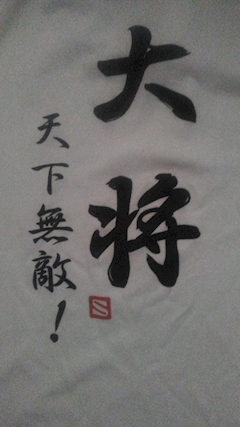 大将
天下無敵！
S